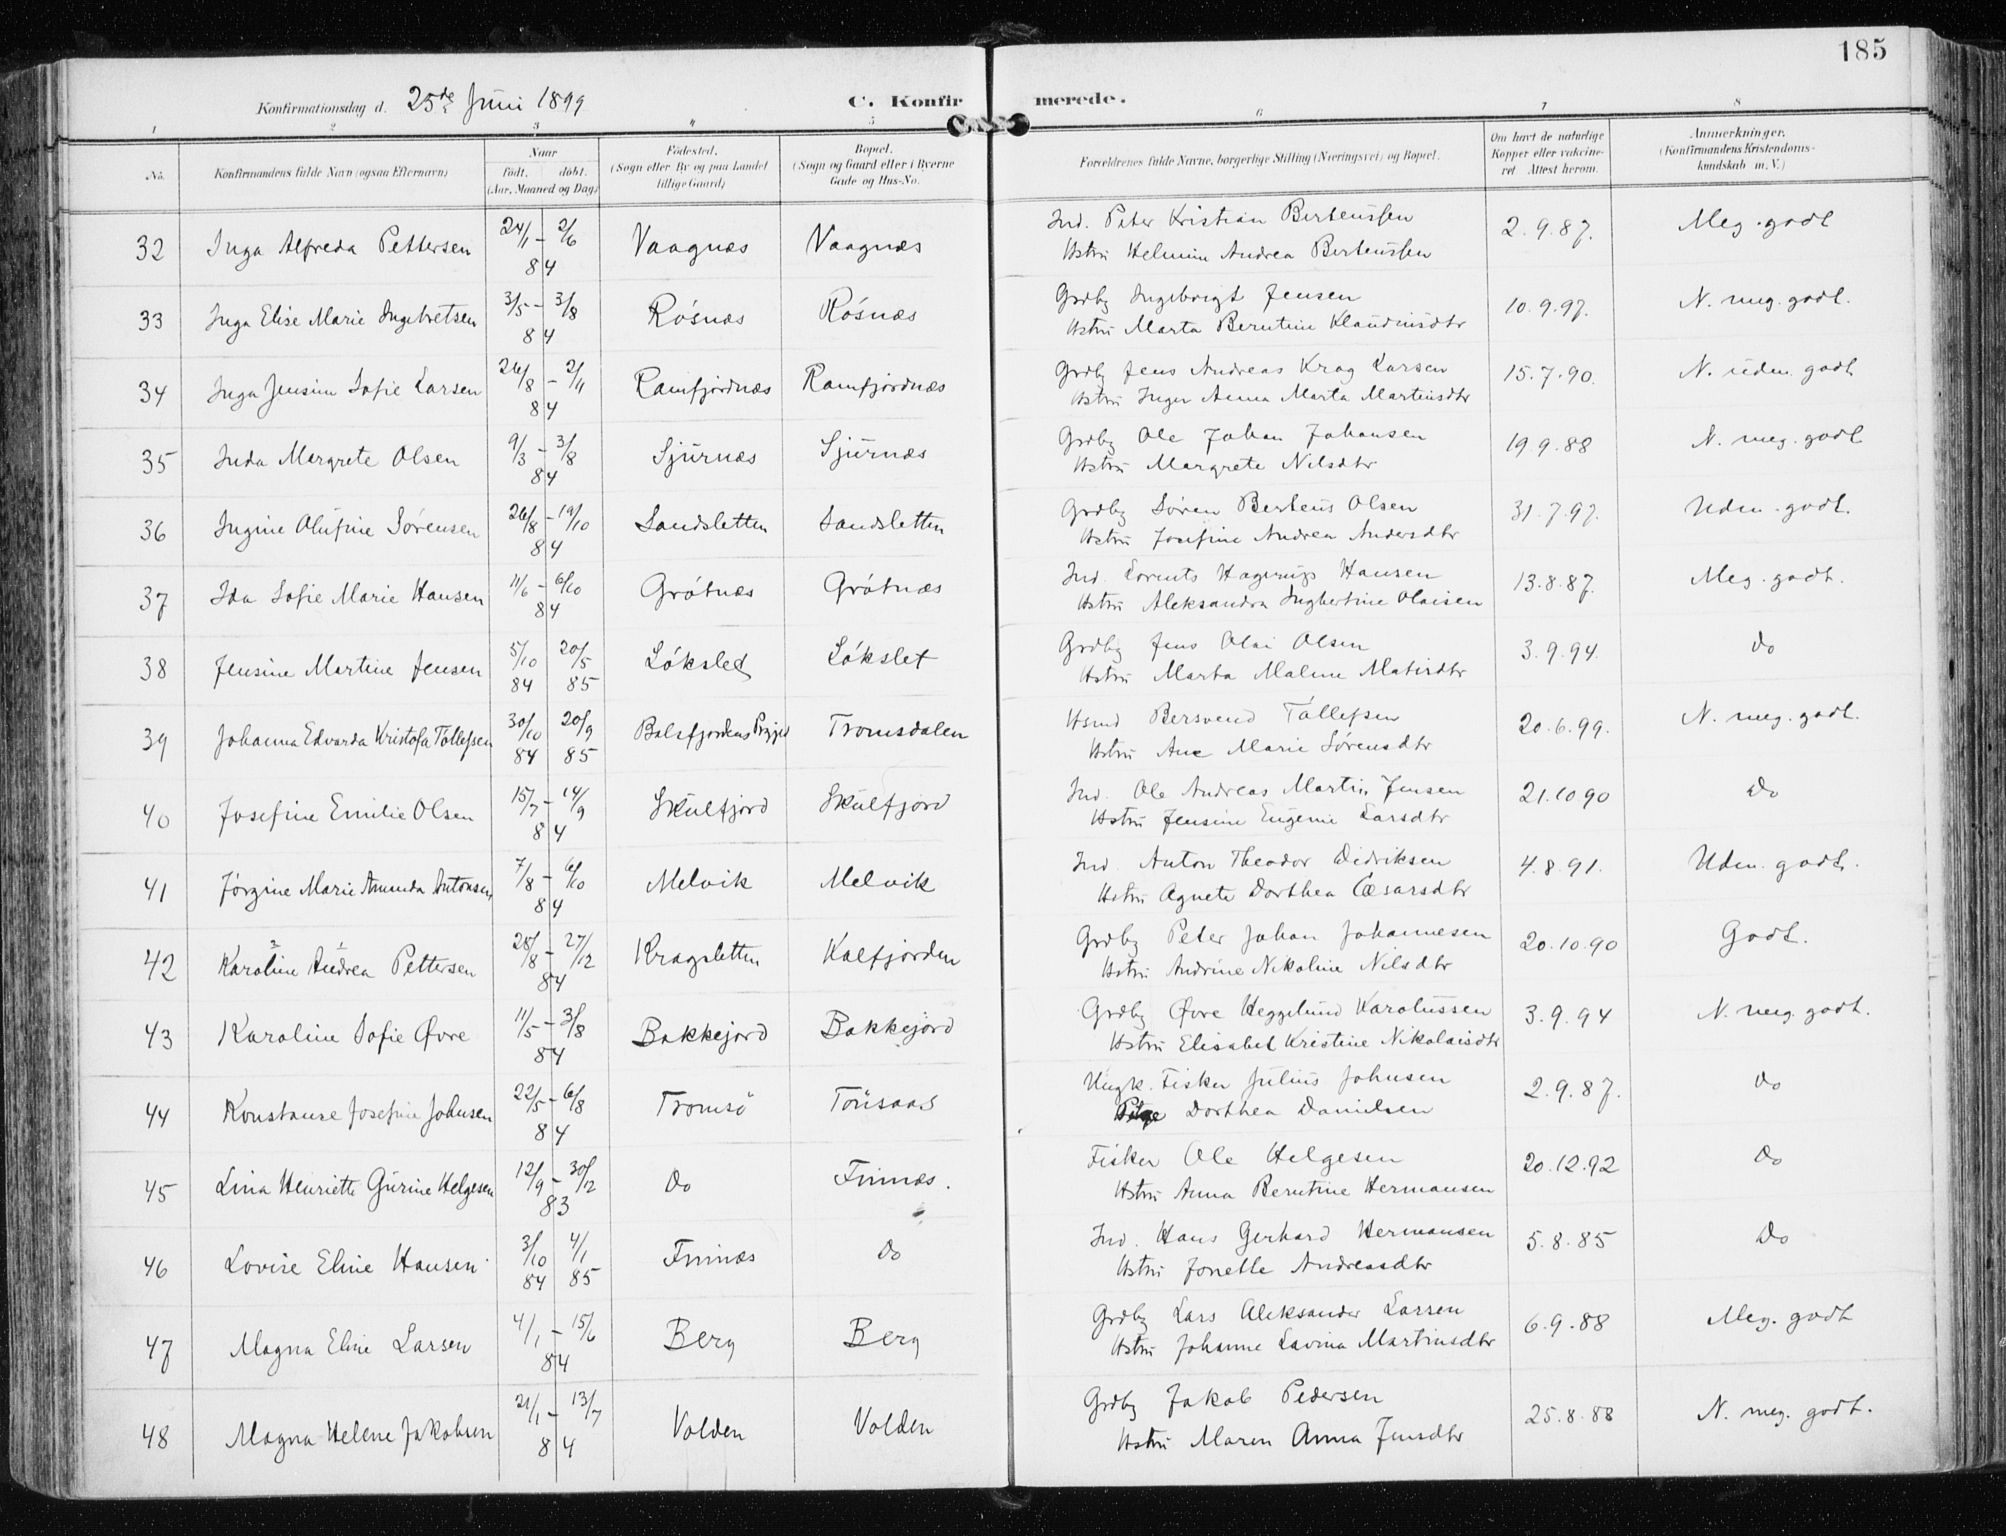 185
Konfirmationsdag d. 25de Juni 1899
C. Konfirmerede.
1 2 3 4 5 6 7 8
No. Konfirmandens fulde Navn (ogsaa Efternavn) Naar født. døbt. (Aar, Maaned og Dag) Fødested. (Sogn eller By og paa Landet tillige Gaard) Bopæl. (Sogn og Gaard eller i Byerne Gade og Hus-No. Forældrenes fulde Navne, borgerlige Stilling (Næringsvei) og Bopæl. Om havt de naturlige Kopper eller vakcineret Attest herom. Anmerkninger. (Konfirmandens Kristendomskundskab m. V.)
32 Inga Alfreda Pettersen 24/1 - 2/6 84 Vaagnæs Vaagnæs Ind. Peter Kristian Berteussen 2.9.87. Meg. godt
Hstru Helmine Andrea Berteussen
33 Inga Elise Marie Ingebretsen 3/5 - 3/8 84 Røsnæs Røsnæs Grdbg Ingebrigt Jensen 10.9.97. N. meg. godt.
Hstru Marta Berntine Klaudiusdtr
34 Inga Jensine Sofie Larsen 26/8 - 2/11 84 Ramfjordnæs Ramfjordnæs Grdbg Jens Andreas Krag Larsen 15.7.90. N. udm. godt
Hstru Inger Anna Marta Martinsdtr
35 Inda Margrete Olsen 9/3 - 3/8 84 Sjurnæs Sjurnæs Grdbg Ole Johan Johansen 19.9.88 N. meg. godt
Hstru Margrete Nilsdtr
36 Ingine Olufine Sørensen 26/8 - 19/10 84 Sandsletten Sandsletten Grdbg Søren Berteus Olsen 31.7.97. Udm. godt.
Hstru Josefine Andrea Andersdtr
37 Ida Sofie Marie Hansen 11/6 - 6/10 84 Grøtnæs Grøtnæs Ind. Lorents Hagerup Hansen 13.8.87. Meg. godt.
Hstru Aleksandra Ingbertine Olaisen
38 Jensine Martine Jensen 5/10 84 20/5 85 Løksled Løkslet Grdbg Jens Olai Olsen 3.9.94. Do
Hstru Marta Maline
39 Johanna Edvarda Kristofa Tollefsen 30/10 84 20/9 85 Balsfjordens Tromsdalen Hsmd Bersvend Tollefsen 20.6.99. N. meg. godt.
Hstru Ane Marie Sørensdtr
40 Josefine Emilie Olsen 15/7 - 14/9 84 Skulfjord Skulfjord Ind. Ole Andreas Martin Jensen 21.10.90 Do
Hstru Jensine Eugenie Larsdtr
41 Jørgine Marie Amanda Antonsen 7/8 - 6/10 84 Melvik Melvik Ind. Anton Theodor Didriksen 4.8.91. Udm. godt.
Hstru Agnete Dorthea Cæsarsdtr
42 Karoline Andrea Pettersen 28/8 - 27/12 84 Kragsletten Kalfjorden Grdbg Peter Johan Johannesen 20.10.90 Godt.
Hstru Andrine Nikoline Nilsdtr
43 Karoline Sofie Øvre 11/5 - 3/8 84 Bakkejord Bakkejord Grdbg Øvre Heggelund Karolussen 3.9.94 N. meg. godt.
Hstru Elisabet Kristine Nikolaisdtr
44 Konstanse Josefine Johnsen 22/5 - 6/8 84 Tromsö Tønsaas Ungk. Fisker Julius Johnsen 2.9.87. Do
Pige Dorthea Danielsen
45 Lina Henriette Gurine Helgesen 12/9 - 30/12 83 Do Finnæs. Fisker Ole Helgesen 20.12.92 Do
Hstru Anna Berntine Hermansen
46 Lovise Eline Hansen 3/10 84 4/1 85 Finnæs Do Ind. Hans Gerhard Hermansen 5.8.85 Do
Hstru Jonette Andreasdtr
47 Magna Eline Larsen 4/1 - 15/6 84 Berg Berg Grdbg Lars Aleksander Larsen 6.9.88 Meg. godt
Hstru Johanne Lavina Martinsdtr
48 Magna Helene Jakobsen 21/1 - 13/7 84 Volden Volden Grdbg Jakob Pedersen 25.8.88 N. meg. godt.
Hstru Maren Anna Jensdtr